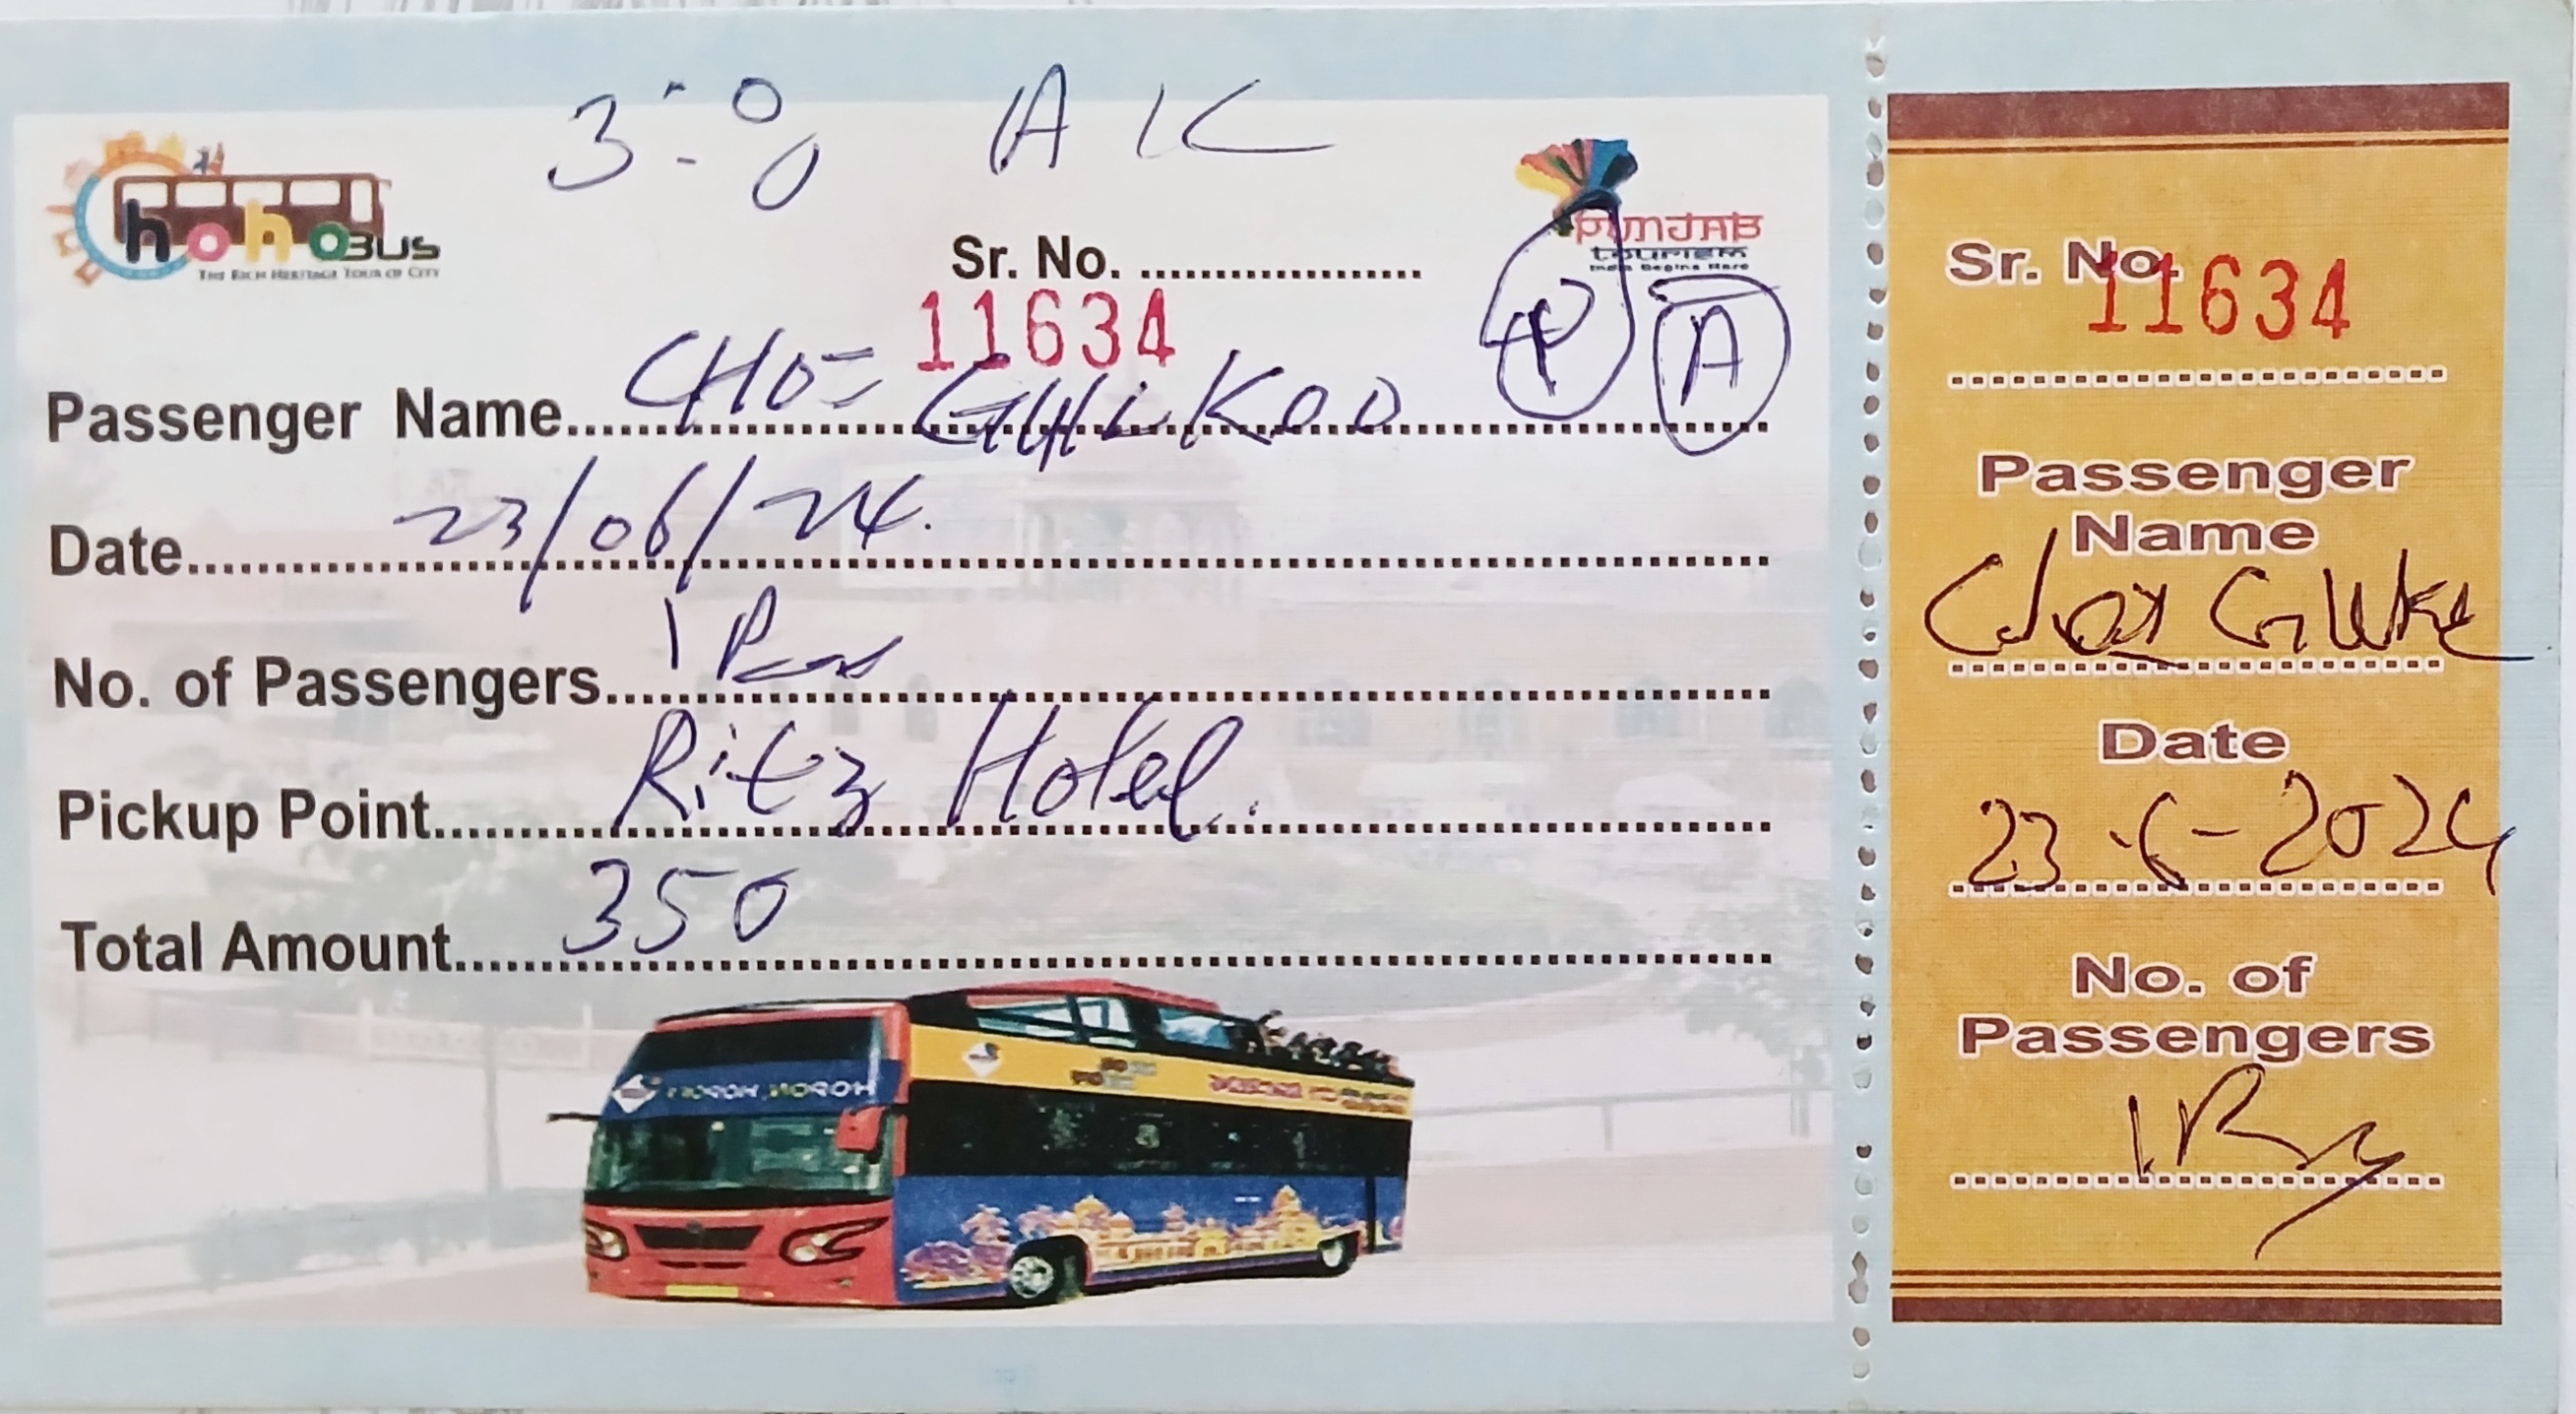 3:00 AK
hohoBUS
THE RICH HERITAGE TOUR OF CITY
PUNJAB
tourism
India Begins Here
Sr. No. ....................
11634
P A
Passenger Name CHOI GHILKOO
Date 23/06/24.
No. of Passengers 1 Pas
Pickup Point Ritz Hotel.
Total Amount 350
Sr. No.
11634
Passenger
Name
Date
23-6-2024
No. of
Passengers
1